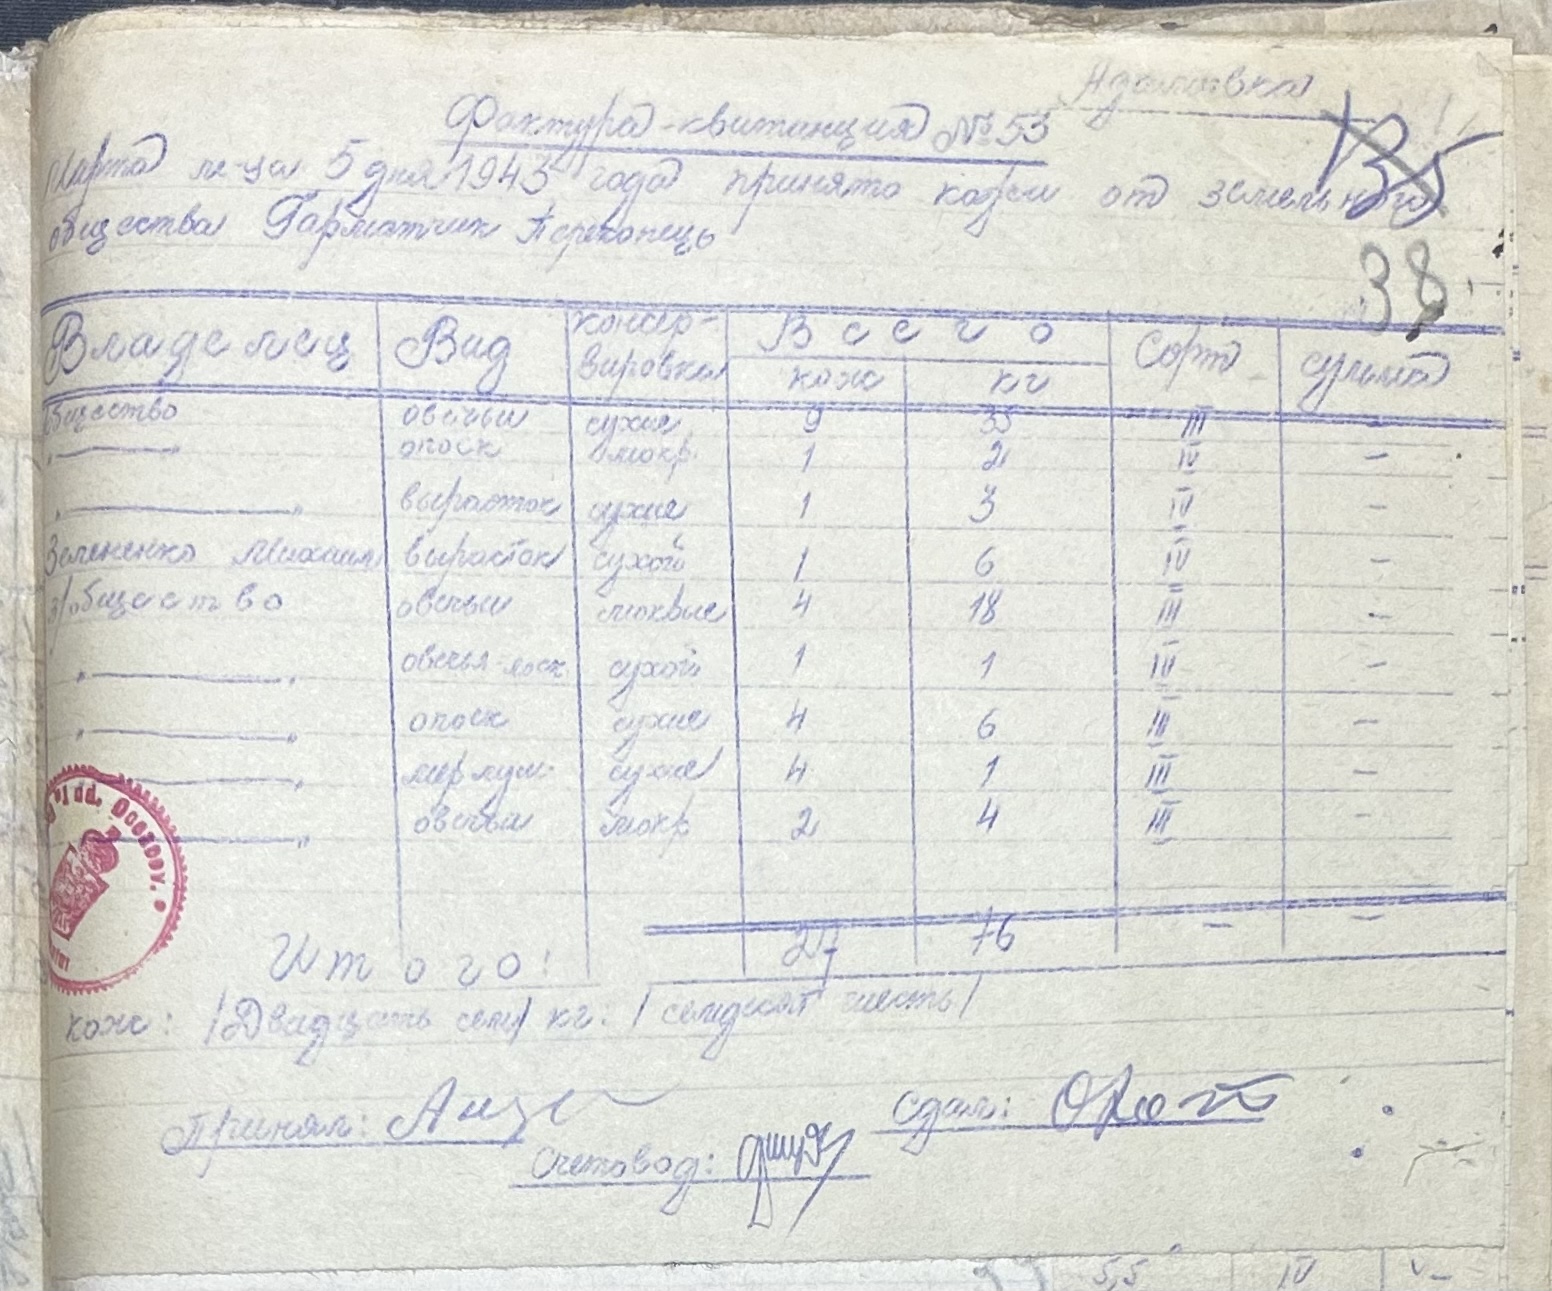 Адамовка
Фактура-квитанция № 53
135
Марта м-ца 5 дня 1943 года принято кожи от земельного
общества Гарматчик Перконець
38
Владелец Вид консер- Всего Сорт сумма
вировка кож кг
Общество овечьи сухие 9 35 III –
" — " опоек мокр. 1 2 IV –
" — " вырасток сухие 1 3 IV –
Зелененко Михаил вырасток сухой 1 6 IV –
з/общество овечьи мокрые 4 18 III –
" — " овечья лоск. сухой 1 1 IV –
" — " опоек сухие 4 6 III –
" — " мерлуш. сухие 4 1 III –
" — " овечьи мокр 2 4 III –
Итого: 27 76 – –
кож: /Двадцать семь/ кг: /семдесят шесть/
Принял: Сдал:
Счетовод:
5,5 IV